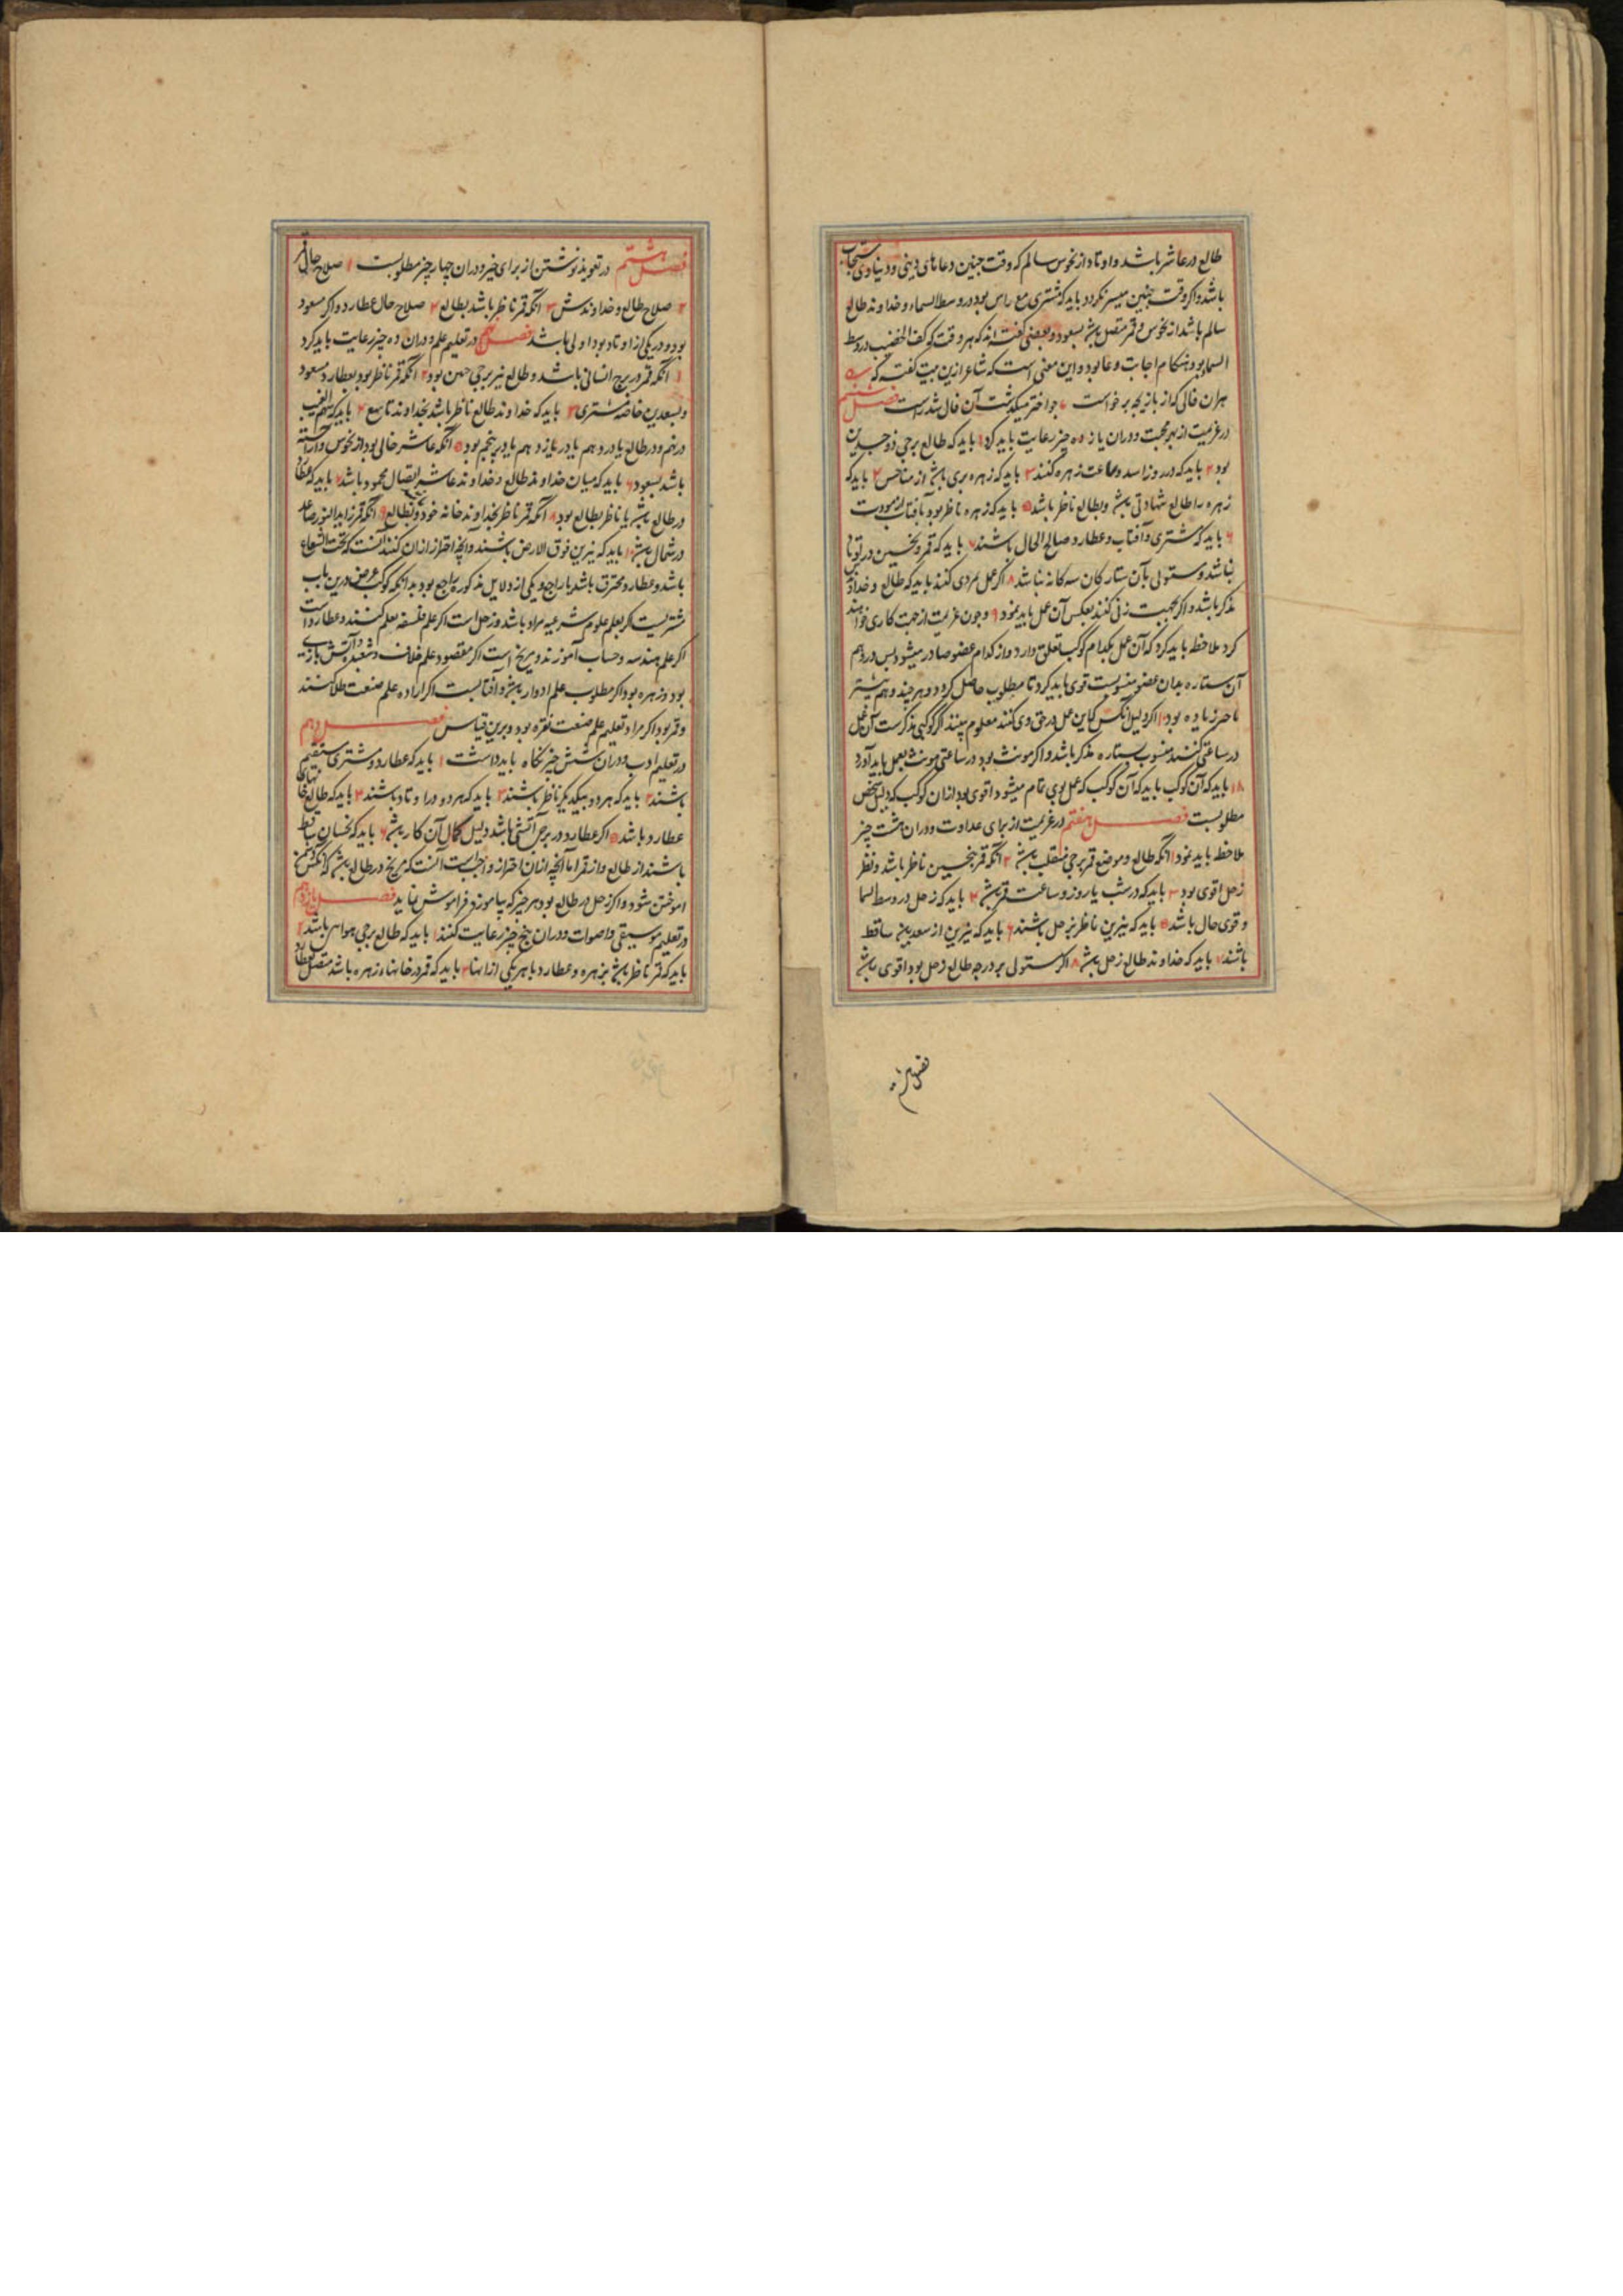 طالع در عاشر باشد و اوتاد از نحوس سالم که وقت چنین دعاهای دینی و دنیاوی مستجاب
باشد و اگر وقت چنین میسر نگردد باید که مشتری مع راس بود در وسط السماء و خداوند طالع
سالم باشد از نحوس و قمر متصل باشد بسعود و بعضی گفته اند که هر وقت که کف الخضیب در وسط
السما بود هنگام اجابت دعا بود و این معنی است که شاعر ازین بیت گفته که
هران فالی که از بازیچه برخواست چو اختر میگذشت آن فال شد راست فصل ششم
در عزیمت از بهر محبت و دران یازده چیز رعایت باید کرد ۱ باید که طالع برجی ذوجسدین
بود ۲ باید که در روز اسد و ساعت زهره کنند ۳ باید که زهره بری باشد از مناحس ۴ باید که
زهره را طالع شهادتی باشد و بطالع ناظر باشد ۵ باید که زهره ناظر بود بآفتاب از مودت
۶ باید که مشتری و آفتاب و عطارد صالح الحال باشند ۷ باید که قمر و نحسین در
نباشد و مستولی بآن ستارکان سه کانه نباشد ۸ اگر عمل مردی کنند باید که طالع و خداوند
مذکر باشد و اگر بجهت زنی کنند بعکس آن عمل باید نمود ۹ و چون عزیمت از جهت کاری خواهند
کرد ملاحظه باید کرد که آن عمل بکدام کوکب تعلق دارد و از کدام عضو صادر میشود پس در وهم
آن ستاره بدان عضو منسوبست قوی باید کرد تا مطلوب حاصل گردد و هر چند وهم بیشتر
تاثیر زیاده بود ۱۰ اگر دلیل انکس که این عمل در حق وی کنند معلوم بینند اگر کوکبی مذکر ست آن عمل
در ساعتی کنند منسوب ستاره مذکر باشد و اگر مونث بود در ساعتی مونث بعمل باید آورد
۱۱ باید که آن کوکب باید که آن کوکب که عمل بوی تمام میشود اقوی بود ازان کوکب که دلیل شخص
مطلوبست فصل هفتم در عزیمت از برای عداوت و دران هشت چیز
ملاحظه باید نمود ۱ انکه طالع و موضع قمر برجی منقلب باشد ۲ انکه قمر بنحسین ناظر باشد و نظر
زحل اقوی بود ۳ باید که در شب یا روز و ساعت قمر باشد ۴ باید که زحل در وسط السما
و قوی حال باشد ۵ باید که نیرین ناظر بزحل باشند ۶ باید که نیرین از سعدین ساقط
باشند ۷ باید که خداوند طالع زحل باشد ۸ اگر مستولی بر درجه طالع زحل بود اقوی باشد
فصل هشتم در تعویذ نوشتن از برای خیر و دران چهار چیز مطلوبست ۱ صلاح حال قمر
۲ صلاح طالع و خداوندش ۳ انکه قمر ناظر باشد بطالع ۴ صلاح حال عطارد و اگر مسعود
بود و در یکی از اوتاد بود اولی باشد فصل نهم در تعلیم علم و دران ده چیز رعایت باید کرد
۱ انکه قمر در برج انسانی باشد و طالع نیز برجی چنین بود ۲ انکه قمر ناظر بود بعطارد مسعود
و بسعدین خاصه مشتری ۳ باید که خداوند طالع ناظر باشد بخداوند تاسع ۴ باید که سهم الغیب
در نهم و در طالع یا در دهم یا در یازدهم یا در پنجم بود ۵ انکه عاشر خالی بود از نحوس و آراسته
باشد بسعود ۶ باید که میان خداوند طالع و خداوند عاشر اتصال محمود باشد ۷ باید که عطارد
در طالع باشد یا ناظر بطالع بود ۸ انکه قمر ناظر بخداوند خانه خود و بطالع ۹ انکه قمر زاید النور صاعد
در شمال باشد ۱۰ باید که نیرین فوق الارض باشند و آنچه احتراز ازان کنند آنست که تحت الشعاع
باشد و عطارد محترق باشد یا راجع و یکی از دلایل مذکوره راجع بود بدانکه کوکب غرض درین باب
مشتریست اگر بعلم علوم شرعیه مراد باشد و زحل است اگر علم فلسفه بعلم کنند و عطارد است
اگر علم هندسه و حساب آموزند و مریخ است اگر مقصود علم خلاف و شعبده و آتش بازی
بود و زهره بود اگر مطلوب علم ادوار باشد و آفتابست اگر اراده علم صنعت طلا کنند
و قمر بود اگر مراد تعلیم علم صنعت نقره بود و برین قیاس فصل دهم
در تعلیم ادب و دران شش چیز نگاه باید داشت ۱ باید که عطارد و مشتری مستقیم
باشند ۲ باید که هر دو بیکدیگر ناظر باشند ۳ باید که هر دو در اوتاد باشند ۴ باید که طالع خانهای
عطارد باشد ۵ اگر عطارد در برج آتشی باشد دلیل کمال آن کار باشد ۶ باید که نحسان ساقط
باشند از طالع و از قمر اما آنچه ازان احتراز واجبست آنست که مریخ در طالع باشد که انکس دشمن
اموختن شود و اگر زحل در طالع بود هر چیز که بیاموزد فراموش نماید فصل یازدهم
در تعلیم موسیقی و اصوات و دران پنج چیز رعایت کنند ۱ باید که طالع برجی هوایی باشد ۲
باید که قمر ناظر باشد بزهره و عطارد یا بهر یکی ازانها ۳ باید که قمر در خانهاء زهره باشد متصل بعطارد